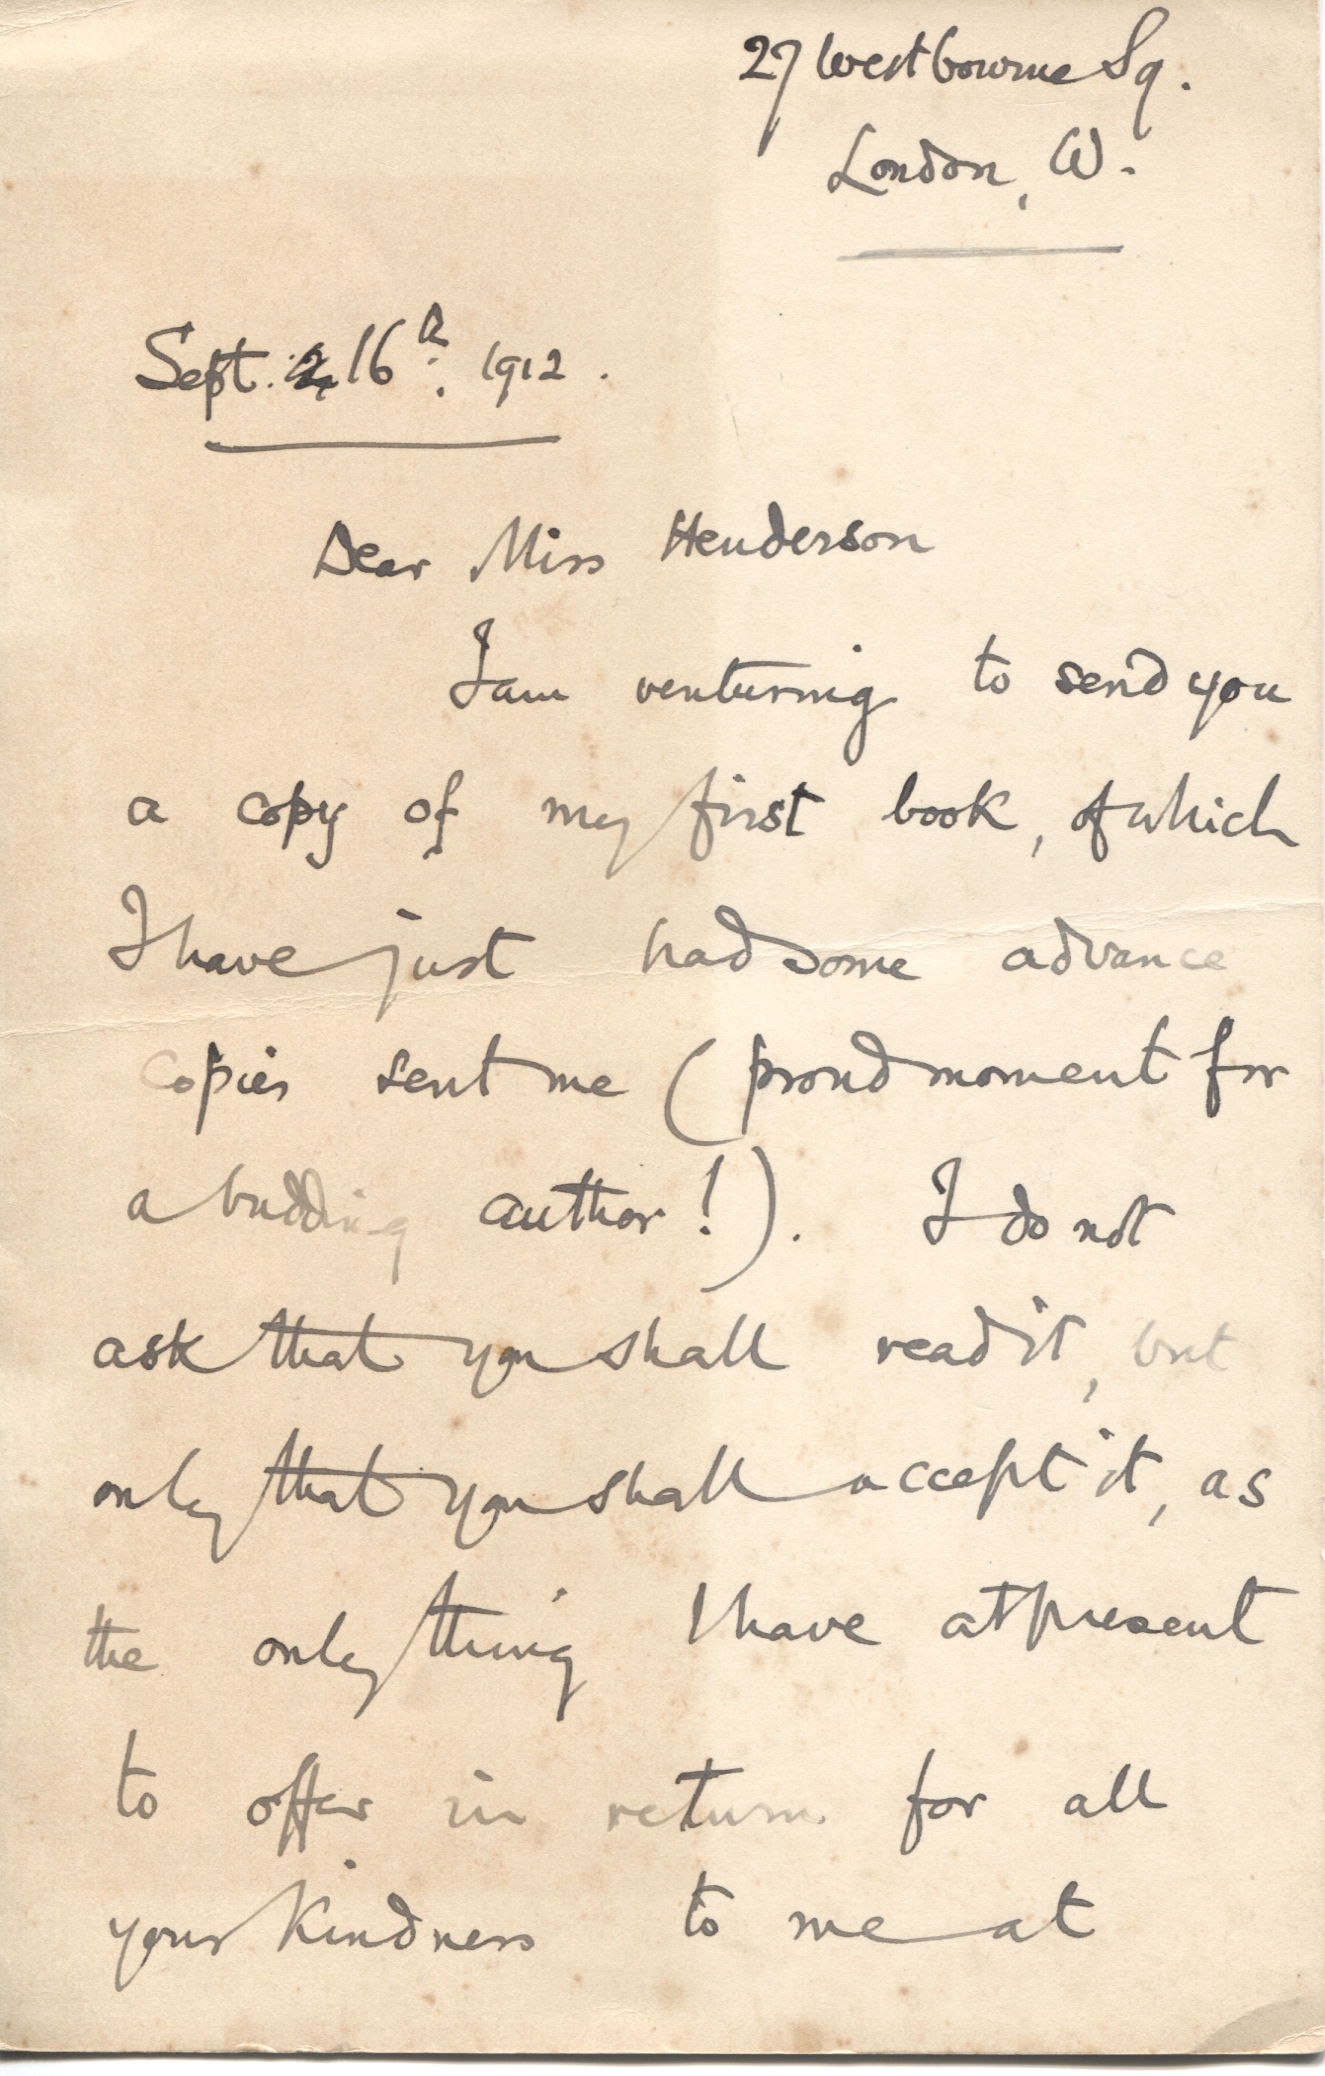 27 Westbourne Sq.
London, W.
Sept. 16th. 1912.
Dear Miss Henderson
I am venturing to send you
a copy of my first book, of which
I have just had some advance
copies sent me (proud moment for
a budding author!). I do not
ask that you shall read it, but
only that you shall accept it, as
the only thing I have at present
to offer in return for all
your kindness to me at